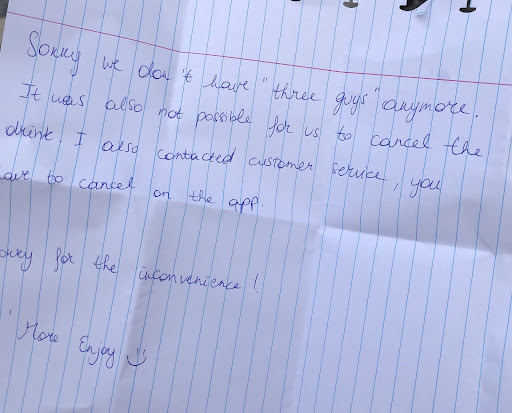 Sorry we don't have "three guys" anymore.
It was also not possible for us to cancel the
drink. I also contacted customer service, you
ave to cancel on the app.
orry for the inconvenience!
' More Enjoy